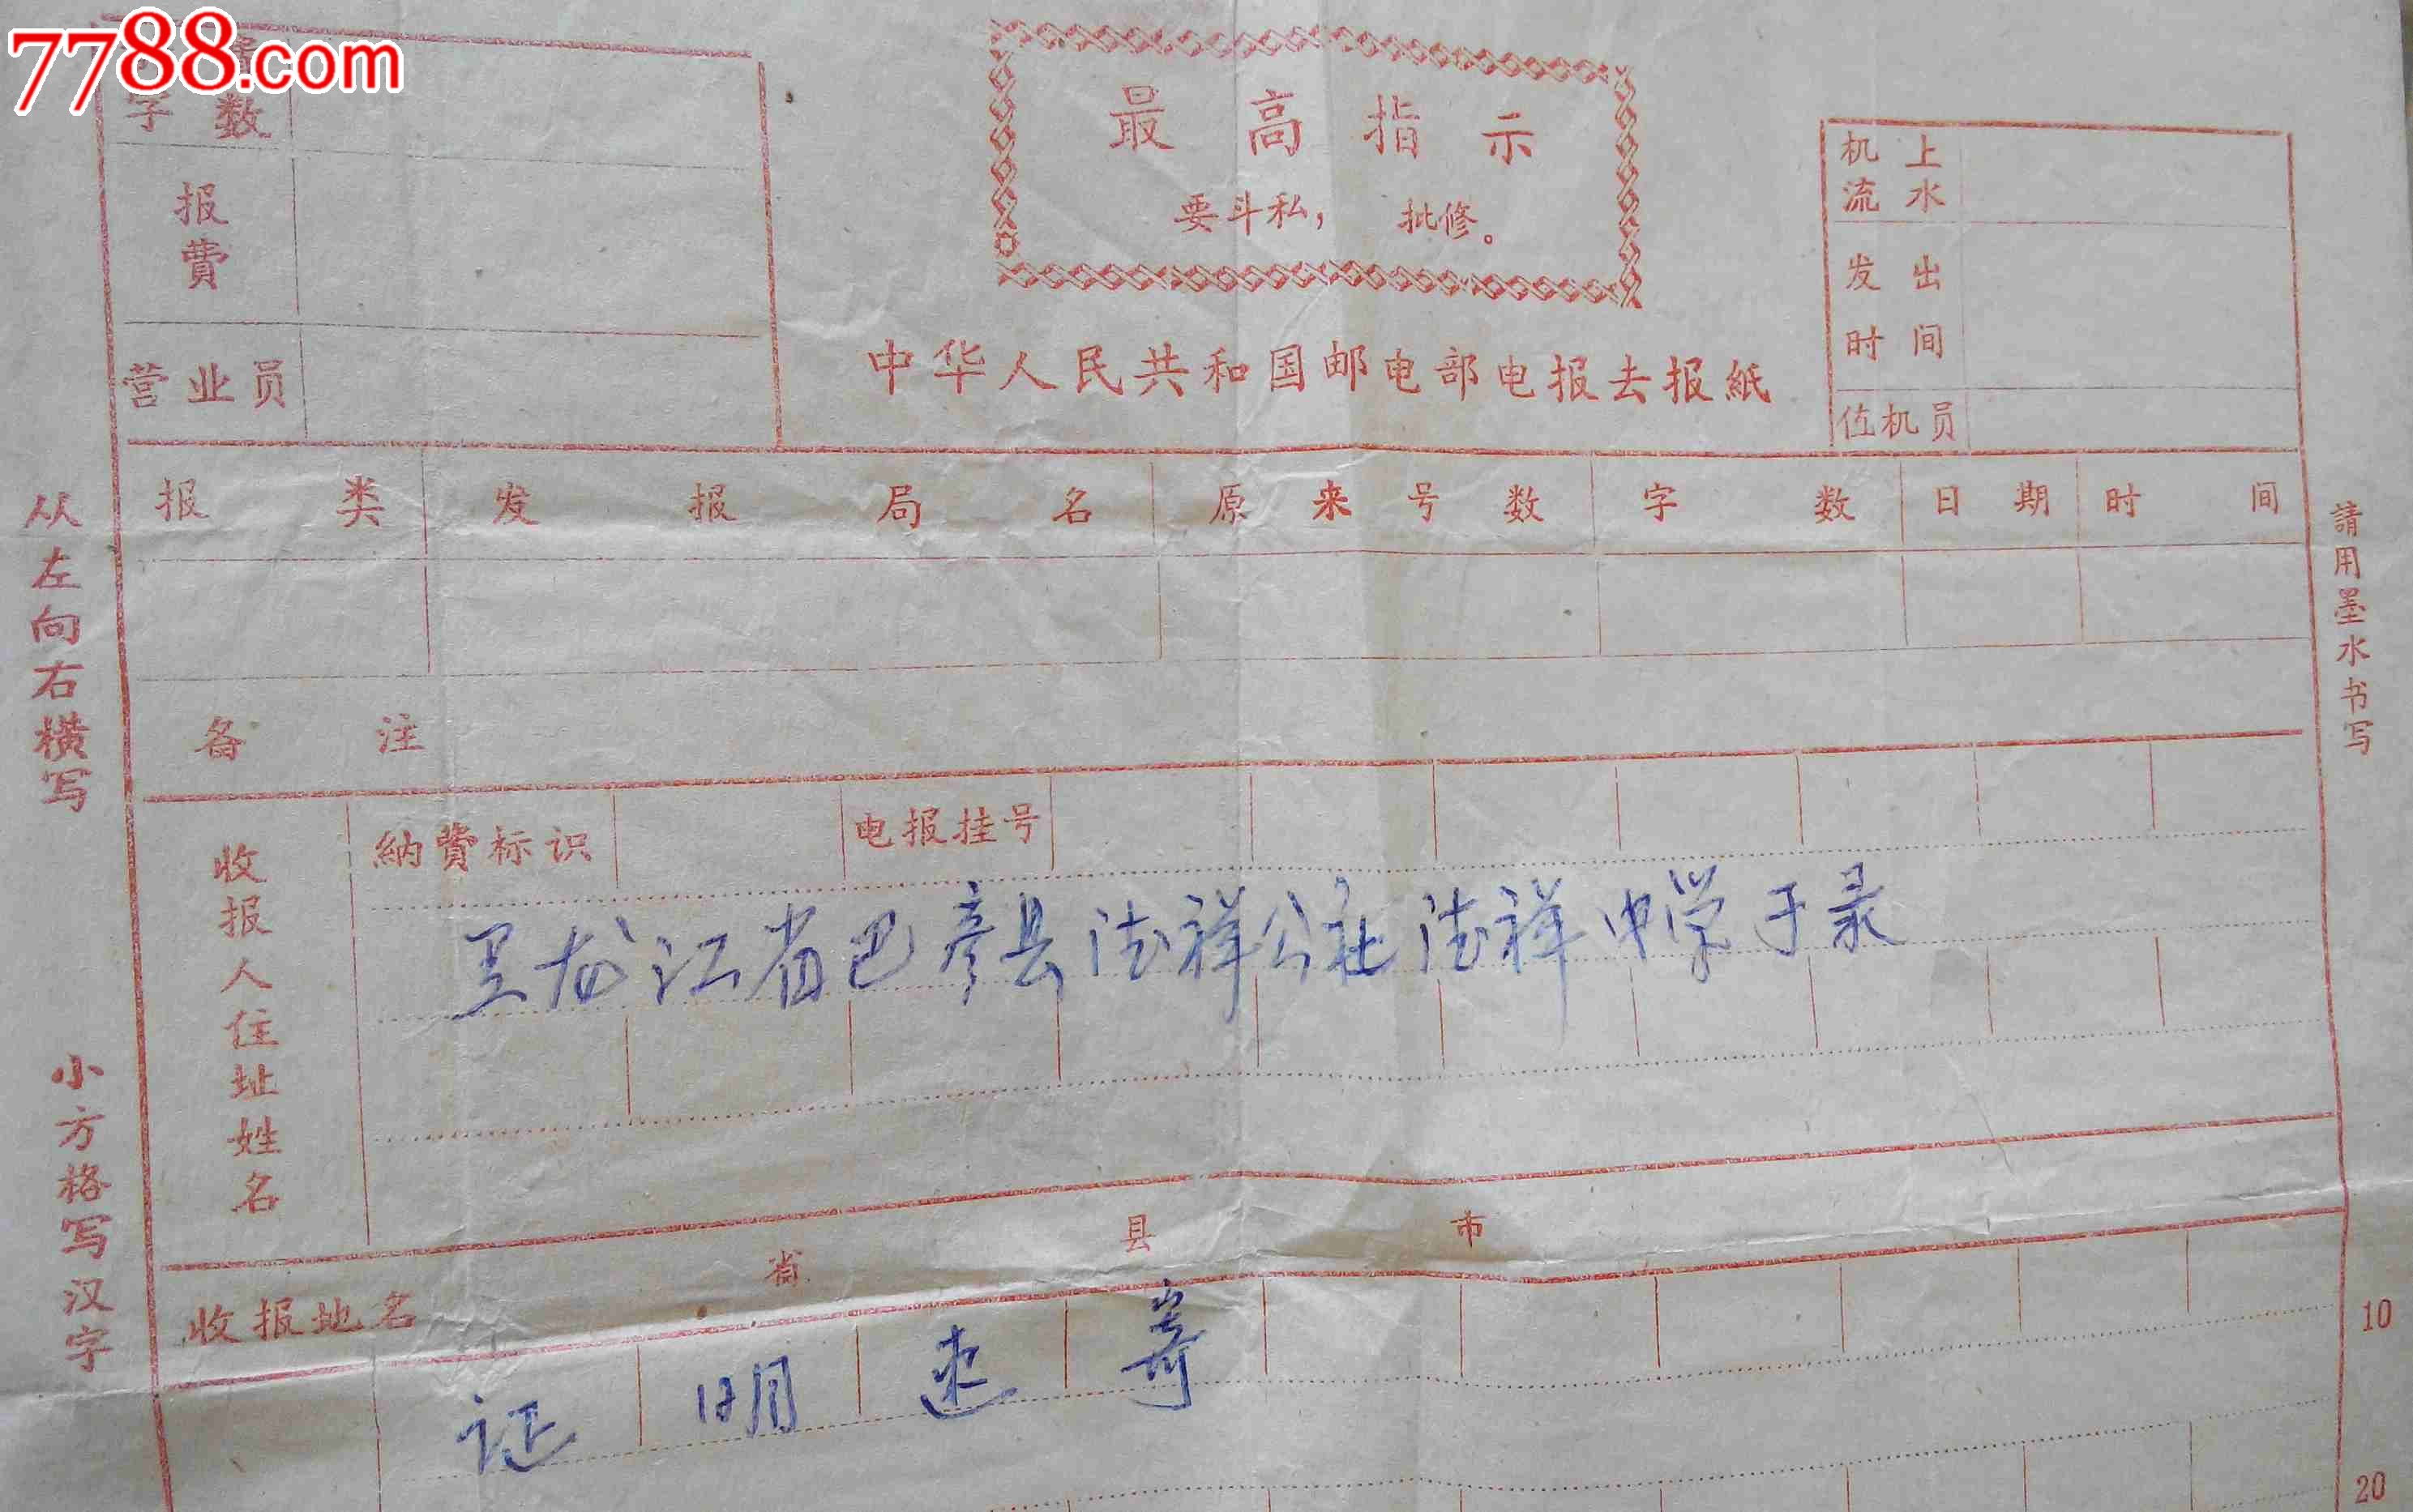 7788.com
字数
报费
营业员
最高指示
要斗私，批修。
中华人民共和国邮电部电报去报紙
机上流水
发出时间
值机员
报类 发报局名 原来号数 字数 日期 时间
备注
从左向右横写
小方格写汉字
請用墨水书写
納費标识 电报挂号
收报人住址姓名
黑龙江省巴彦县德祥公社德祥中学于录
收报地名 省 县 市
证明速寄
10
20